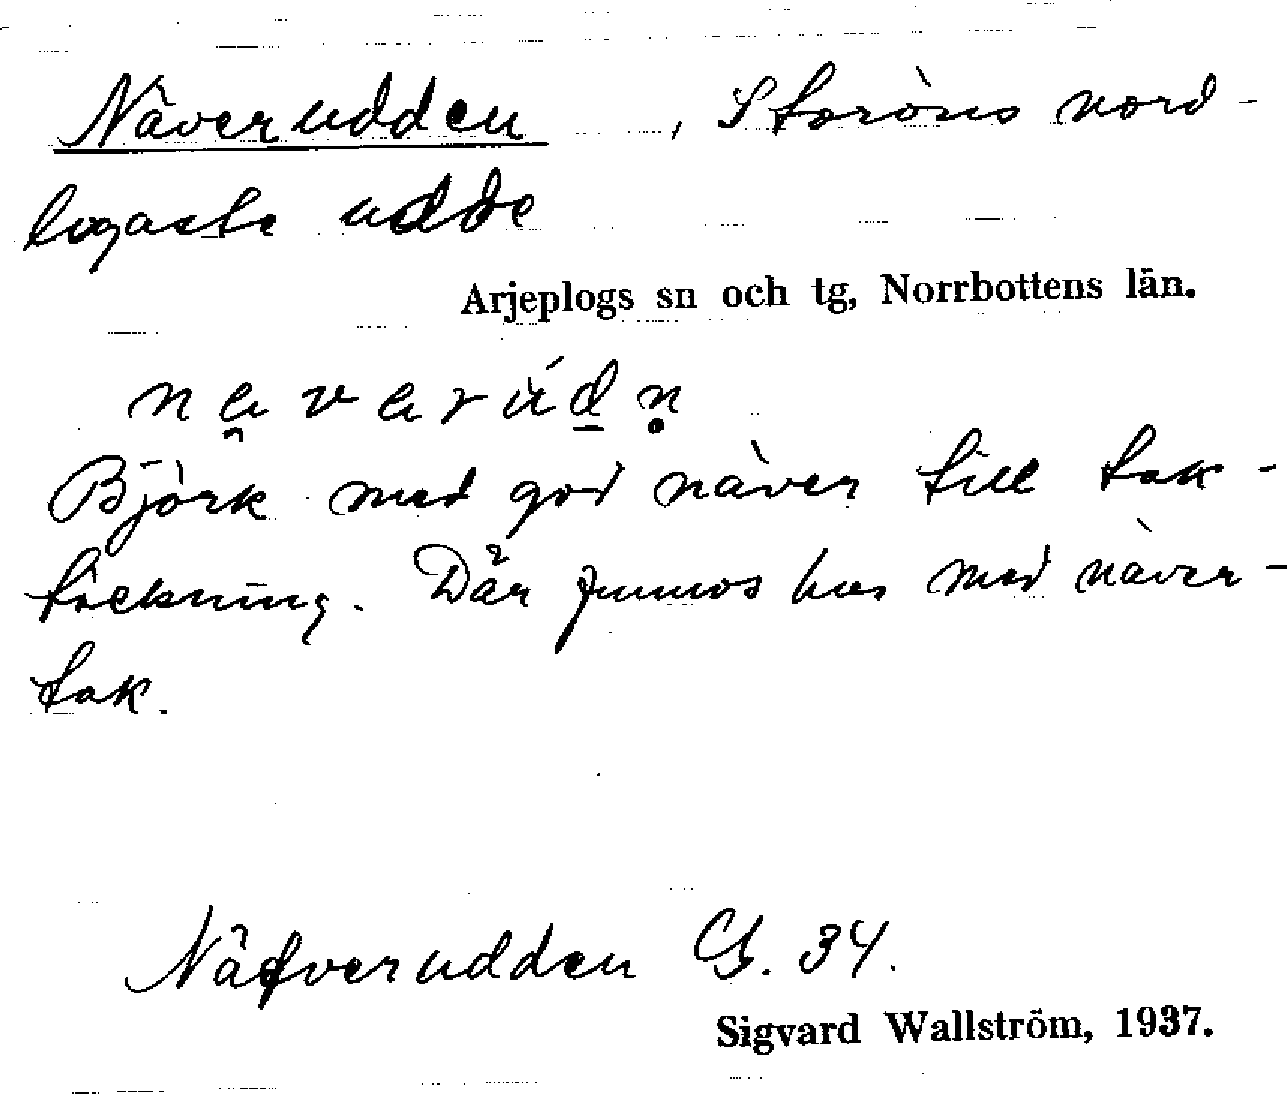 Näverudden, Storöns nord-
ligaste udde
Arjeplogs sn och tg, Norrbottens län.
Björk med god näver till tak-
täckning. Där finnos hus med näver-
tak.
Näfverudden GS. 34.
Sigvard Wallström, 1937.